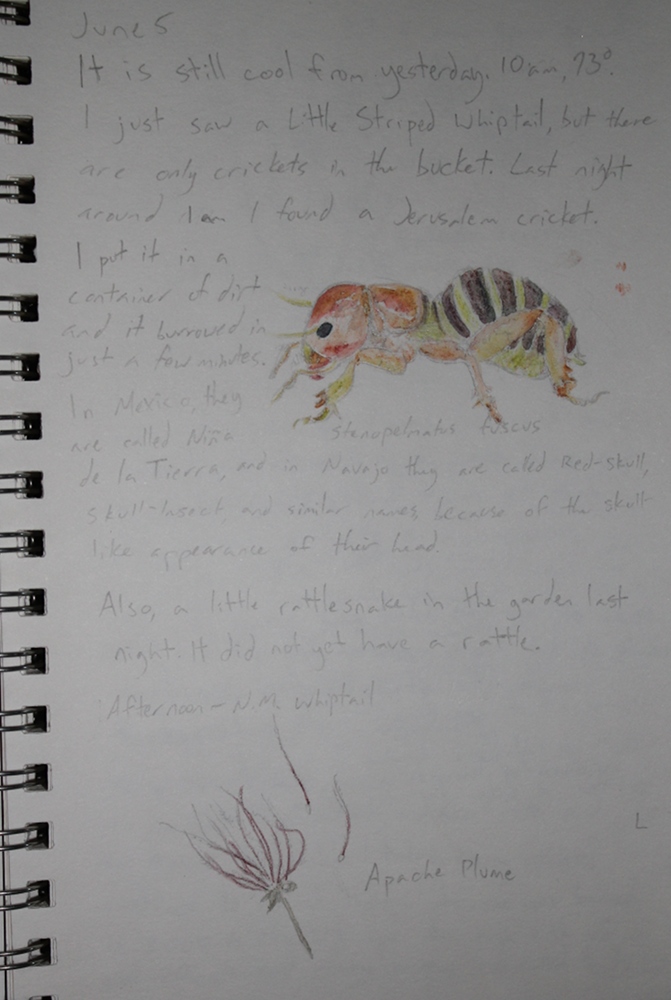 June 5
It is still cool from yesterday. 10am, 73°.
I just saw a Little Striped Whiptail, but there
are only crickets in the bucket. Last night
around 1am I found a Jerusalem cricket.
I put it in a
container of dirt
and it burrowed in
just a few minutes.
In Mexico, they
are called Niña
de la Tierra, and in Navajo they are called Red-skull,
skull-Insect, and similar names, because of the skull-
like appearance of their head.
stenopelmatus fuscus
Also, a little rattlesnake in the garden last
night. It did not yet have a rattle.
Afternoon - N.M. whiptail
Apache Plume
L